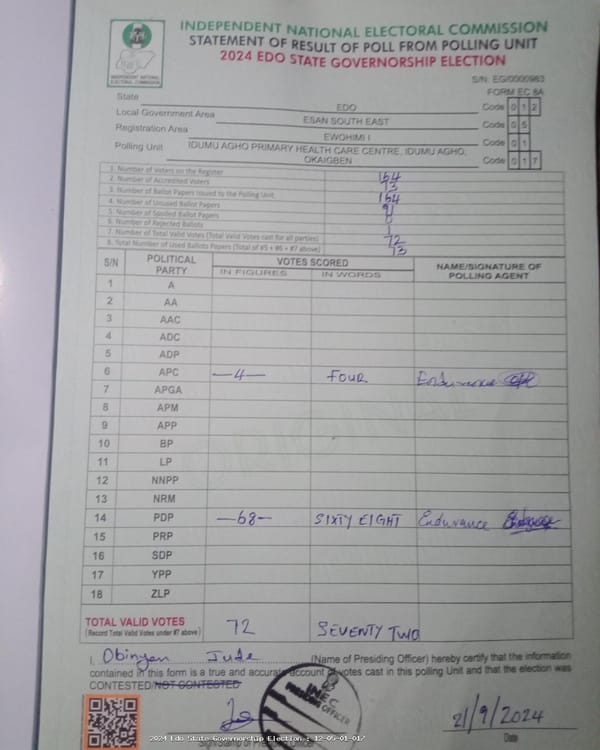 INDEPENDENT NATIONAL ELECTORAL COMMISSION
STATEMENT OF RESULT OF POLL FROM POLLING UNIT
2024 EDO STATE GOVERNORSHIP ELECTION
INDEPENDENT NATIONAL ELECTORAL COMMISSION
S/N: EG/0000983
FORM EC 8A
State EDO Code 0 1 2
Local Government Area ESAN SOUTH EAST Code 0 5
Registration Area EWOHIMI I Code 0 1
Polling Unit IDUMU AGHO PRIMARY HEALTH CARE CENTRE, IDUMU AGHO, OKAIGBEN Code 0 1 7
1. Number of Voters on the Register 164
2. Number of Accredited Voters 73
3. Number of Ballot Papers Issued to the Polling Unit 164
4. Number of Unused Ballot Papers 91
5. Number of Spoiled Ballot Papers 0
6. Number of Rejected Ballots 1
7. Number of Total Valid Votes (Total Valid Votes cast for all parties) 72
8. Total Number of Used Ballots Papers (Total of #5 + #6 + #7 above) 73
S/N POLITICAL PARTY VOTES SCORED NAME/SIGNATURE OF POLLING AGENT
IN FIGURES IN WORDS
1 A
2 AA
3 AAC
4 ADC
5 ADP
6 APC —4— FOUR Endurance
7 APGA
8 APM
9 APP
10 BP
11 LP
12 NNPP
13 NRM
14 PDP —68— SIXTY EIGHT Endurance
15 PRP
16 SDP
17 YPP
18 ZLP
TOTAL VALID VOTES 72 SEVENTY TWO
(Record Total Valid Votes under #7 above)
I, Obinyan Jude (Name of Presiding Officer) hereby certify that the information
contained in this form is a true and accurate account of votes cast in this polling Unit and that the election was
CONTESTED/NOT CONTESTED
INEC
PRESIDING OFFICER
21/9/2024
Date
2024 Edo State Governorship Election : 12-05-01-017